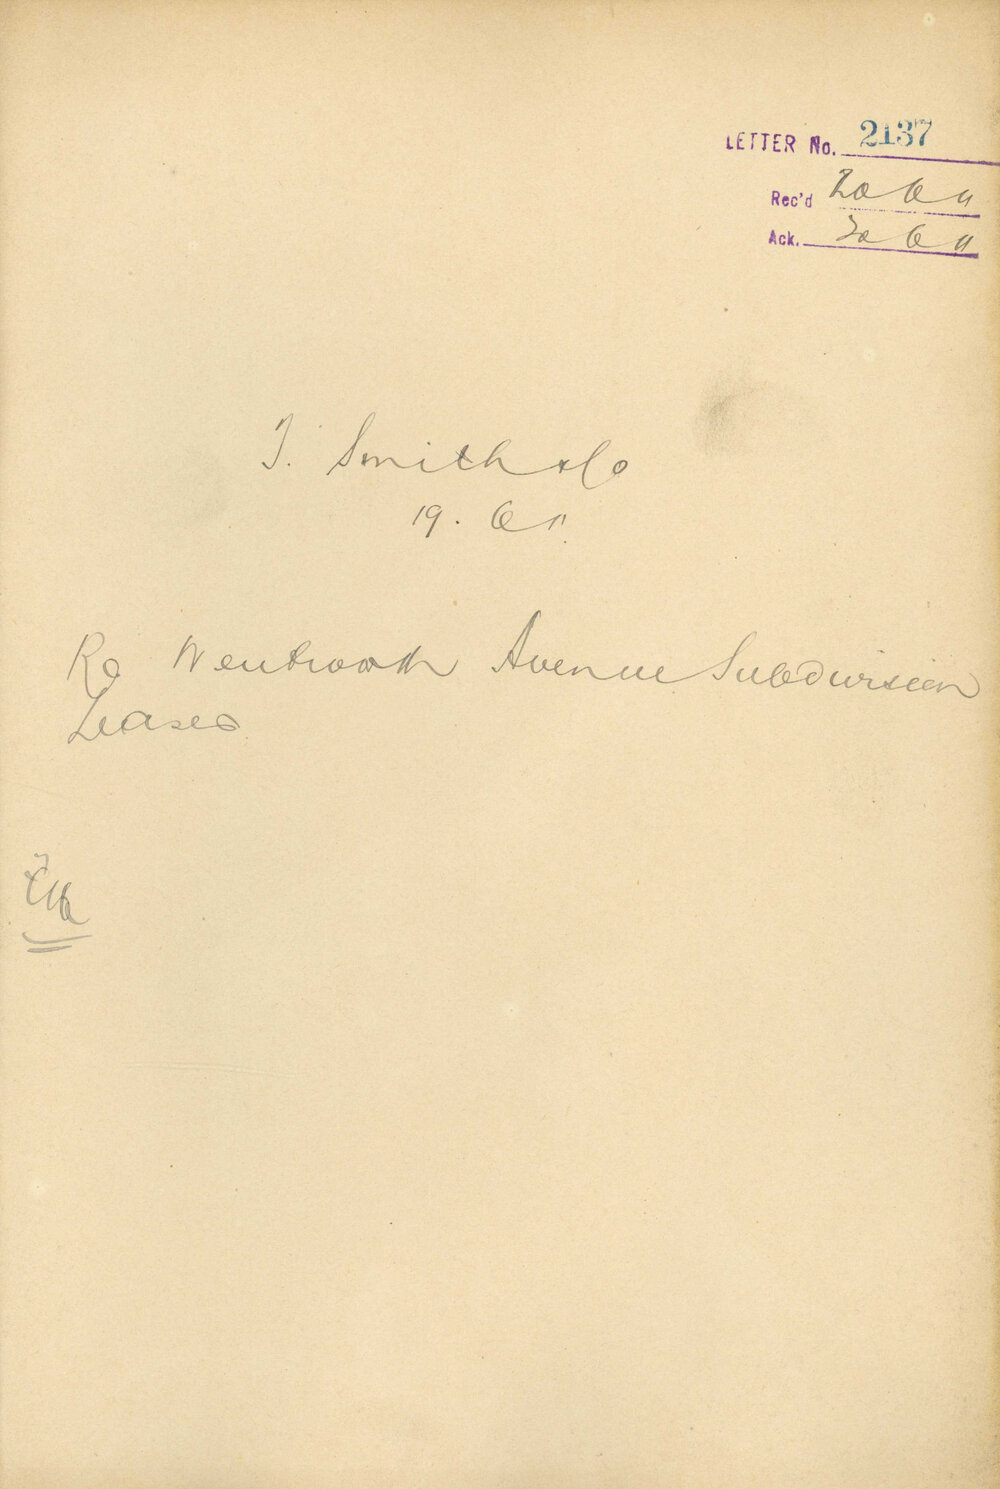 LETTER No. 2137
Rec'd 20 6 11
Ack. 20 6 11
T. Smith & Co
19. 6 11.
Re Wentworth Avenue Subdivision
Leases